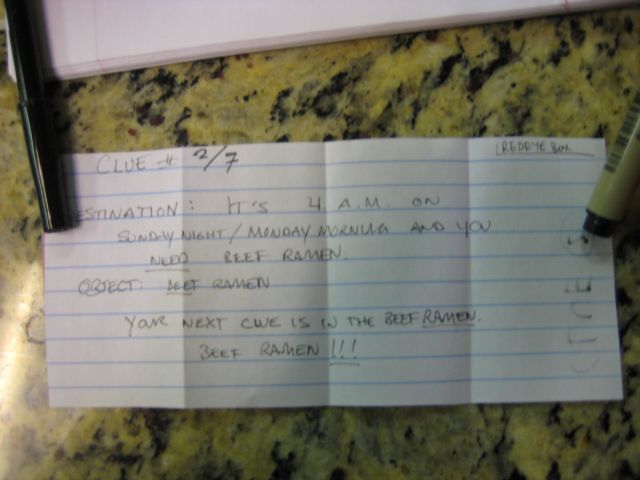 CLUE # 2/7
REDEYE BOX
DESTINATION: IT'S 4 A.M. ON
SUNDAY NIGHT/MONDAY MORNING AND YOU
NEED BEEF RAMEN.
OBJECT: BEEF RAMEN
YOUR NEXT CLUE IS IN THE BEEF RAMEN.
BEEF RAMEN!!!